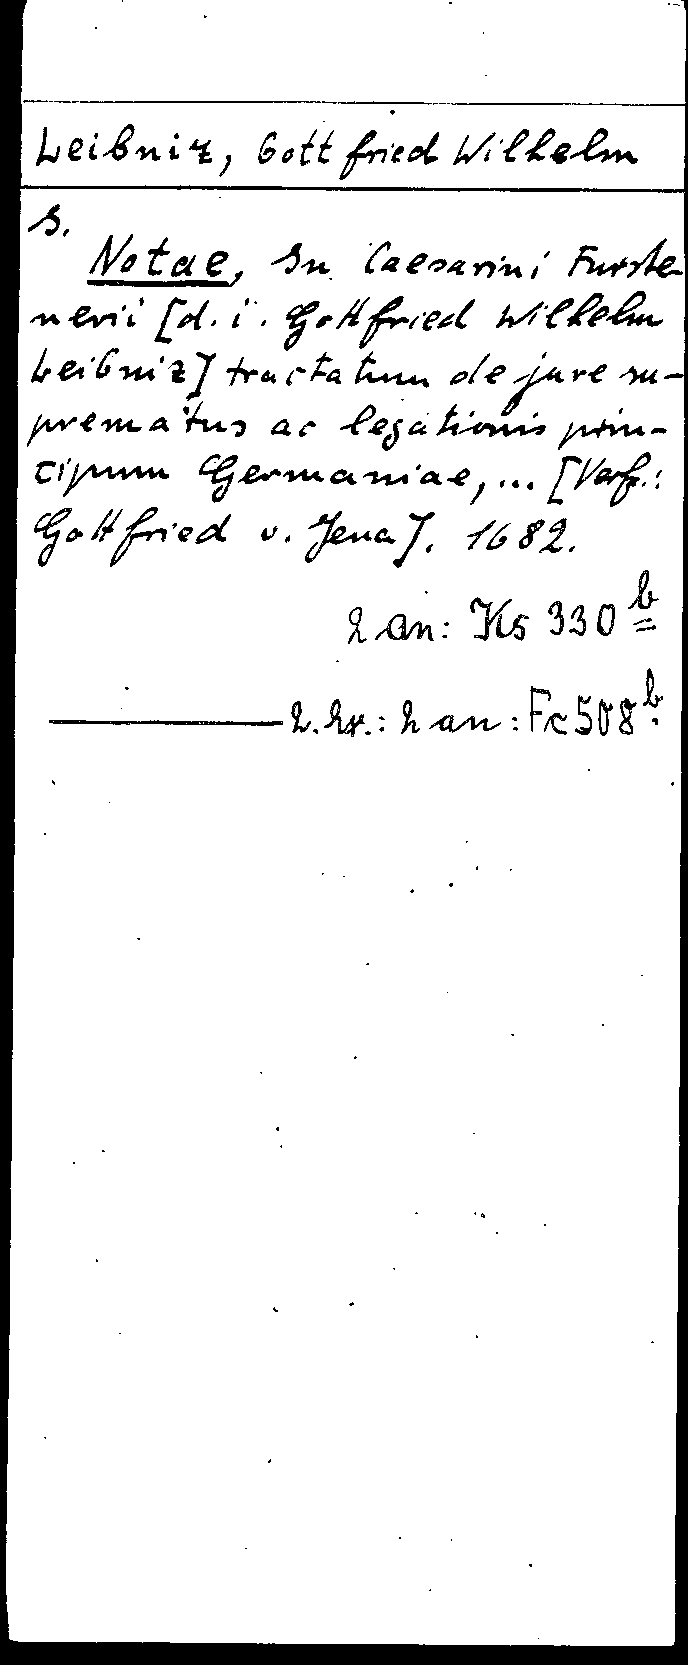 Leibniz, Gottfried Wilhelm
s.
Notae, In Caesarini Furste-
nerii [d. i. Gottfried Wilhelm
Leibniz] tractatum de jure su-
prematus ac legationis prin-
cipum Germaniae, ... [Verf.:
Gottfried v. Jena]. 1682.
2 an: Ks 330 b
2. Ex.: 2 an: Fc 508 b